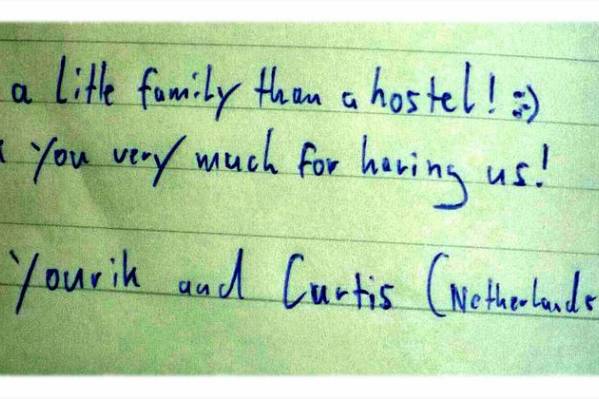 a little family than a hostel! :)
you very much for having us!
Yourik and Curtis (Netherlands